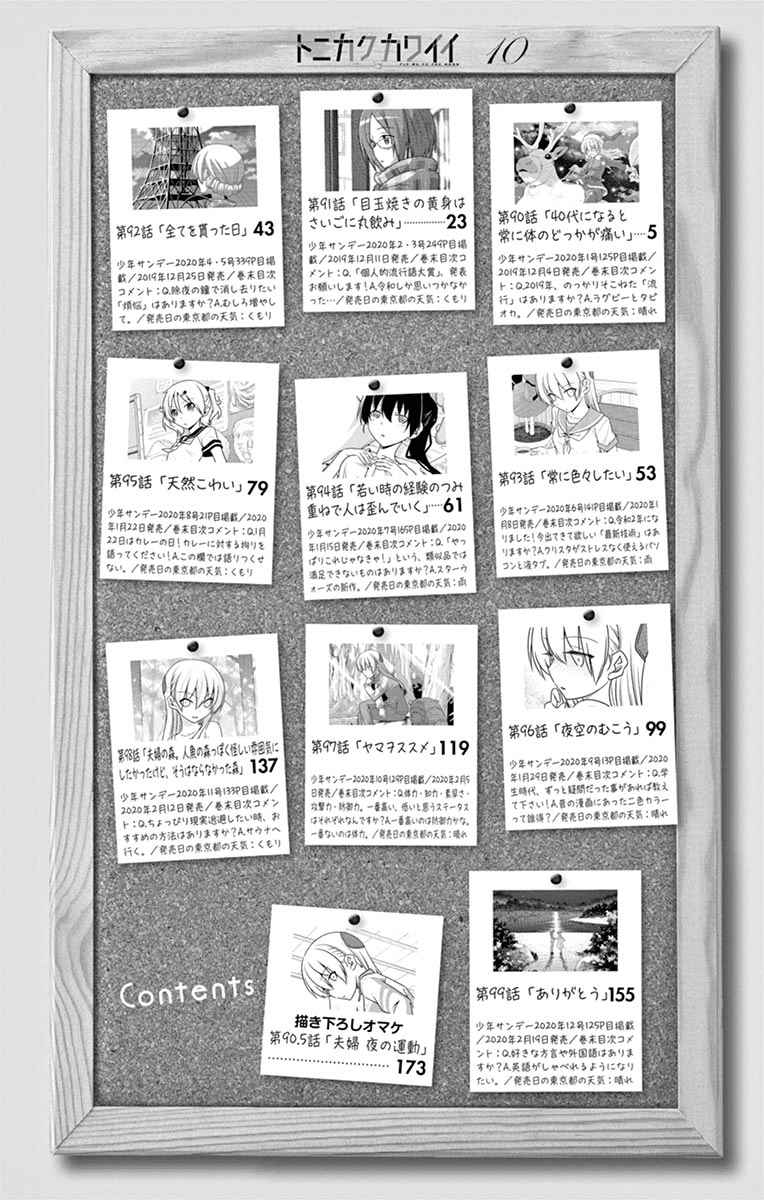 トニカクカワイイ 10
FLY ME TO THE MOON
第90話「40代になると
常に体のどっかが痛い」…5
少年サンデー2020年1号125P目掲
載／2019年12月4日発売／巻末目次
コメント：Q.2019年、のっかりそこねた「流
行」はありますか？A.ラグビーとタピ
オカ。／発売日の東京都の天気：晴れ
第91話「目玉焼きの黄身は
さいごに丸飲み」……………23
少年サンデー2020年2・3号249P目掲
載／2019年12月11日発売／巻末目次コ
メント：Q.「個人的流行語大賞」、発表
お願いします！A.令和しか思いつかなか
った…／発売日の東京都の天気：くもり
第92話「全てを貰った日」43
少年サンデー2020年4・5号339P目掲
載／2019年12月25日発売／巻末目次
コメント：Q.除夜の鐘で消し去りたい
「煩悩」はありますか？A.むしろ増やし
て。／発売日の東京都の天気：くもり
第93話「常に色々したい」53
少年サンデー2020年6号141P目掲載／2020年1
月8日発売／巻末目次コメント：Q.令和2年にな
りました！今出てきて欲しい「最新技術」はあ
りますか？A.クリスタがストレスなく使えるパソ
コンと液タブ。／発売日の東京都の天気：雨
第94話「若い時の経験のつみ
重ねで人は歪んでいく」……61
少年サンデー2020年7号165P目掲載／2020
年1月15日発売／巻末目次コメント：Q.「やっ
ぱりこれじゃなきゃ！」という、類似品では
満足できないものはありますか？A.スターウ
ォーズの新作。／発売日の東京都の天気：雨
第95話「天然こわい」79
少年サンデー2020年8号21P目掲載／2020
年1月22日発売／巻末目次コメント：Q.1月
22日はカレーの日！カレーに対する拘りを
語ってください！A.この欄では語りつくせ
ない。／発売日の東京都の天気：くもり
第96話「夜空のむこう」99
少年サンデー2020年9号13P目掲載／2020
年1月29日発売／巻末目次コメント：Q.学
生時代、ずっと疑問だった事があれば教え
て下さい！A.昔の漫画にあった二色カラー
って誰得？／発売日の東京都の天気：晴れ
第97話「ヤマヲススメ」119
少年サンデー2020年10号129P目掲載／2020年2月5
日発売／巻末目次コメント：Q.体力・知力・素早さ・
攻撃力・防御力。一番高い、低いと思うステータス
はそれぞれなんですか？A.一番高いのは防御力かな。
一番ないのは体力。／発売日の東京都の天気：晴れ
第98話「夫婦の森。人魚の森っぽく怪しい雰囲気に
したかったけど、そうはならなかった森」137
少年サンデー2020年11号133P目掲載／
2020年2月12日発売／巻末目次コメン
ト：Q.ちょっぴり現実逃避したい時、お
すすめの方法はありますか？A.サウナへ
行く。／発売日の東京都の天気：くもり
第99話「ありがとう」155
少年サンデー2020年12号125P目掲載
／2020年2月19日発売／巻末目次コメ
ント：Q.好きな方言や外国語はありま
すか？A.英語がしゃべれるようになり
たい。／発売日の東京都の天気：晴れ
描き下ろしオマケ
第90.5話「夫婦 夜の運動」
……………………………173
Contents